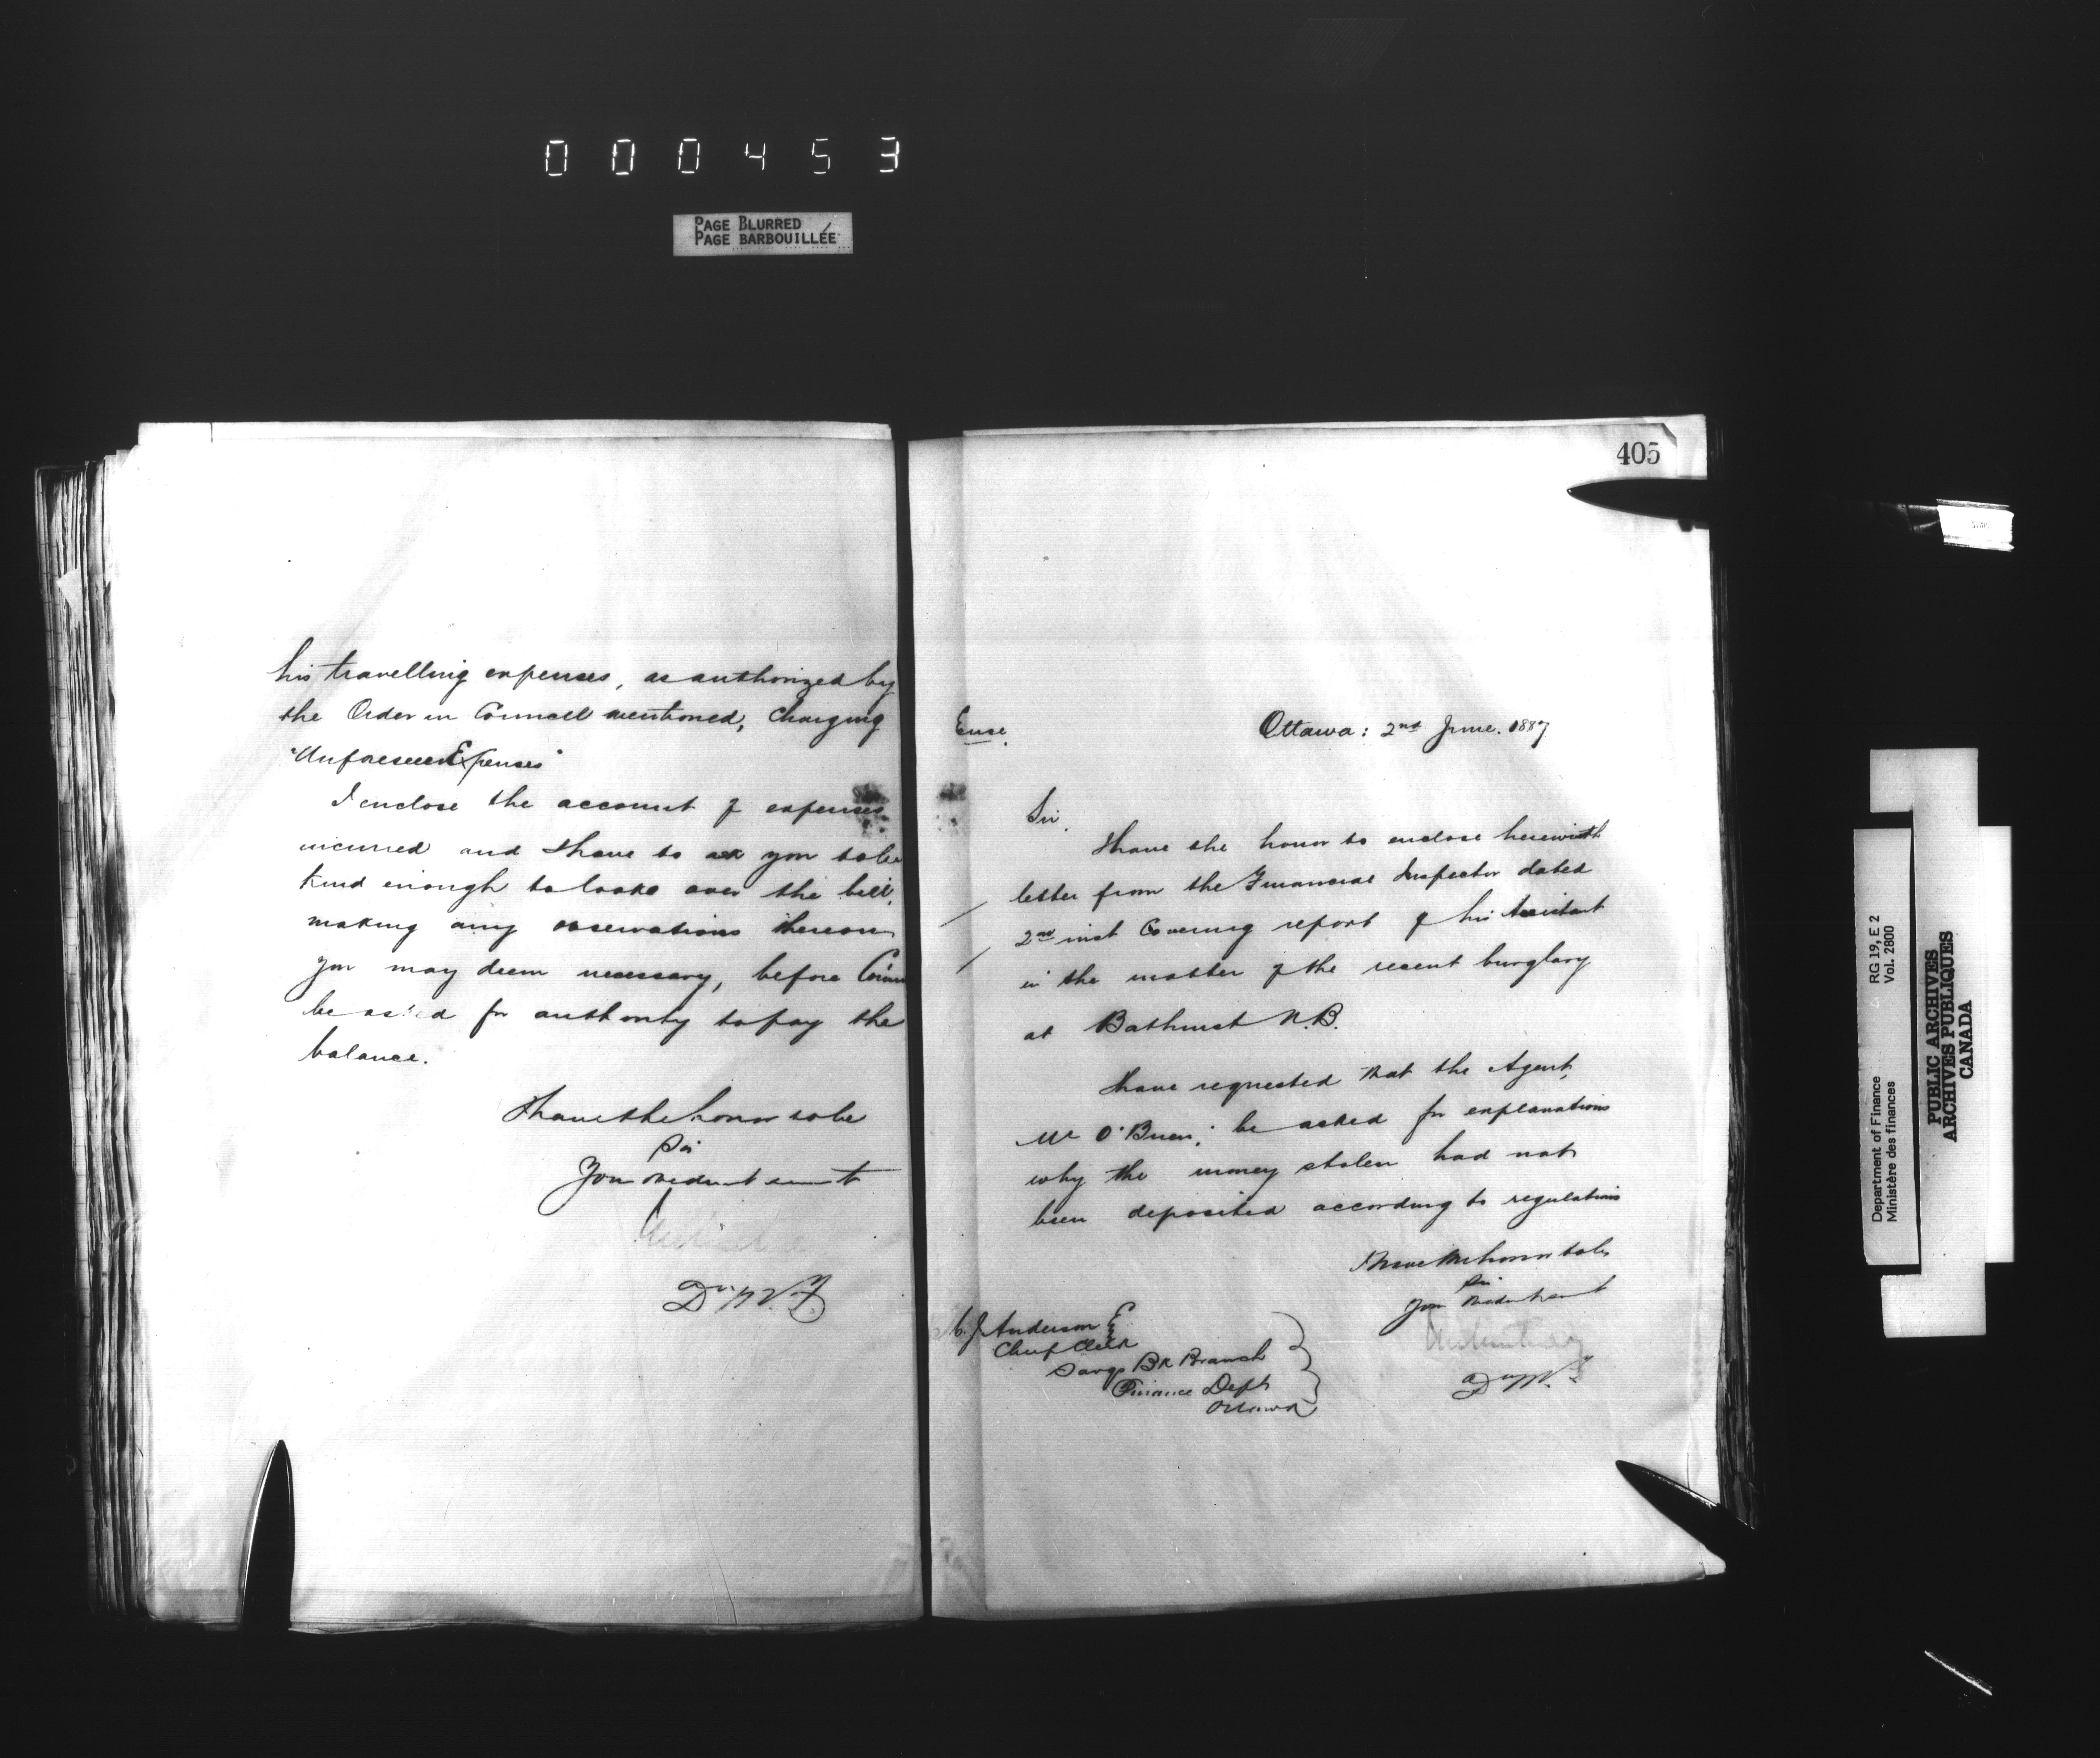 000453
PAGE BLURRED
PAGE BARBOUILLÉE
his travelling expenses, as authorized by
the Order in Council mentioned, charging
"Unforeseen Expenses"
I enclose the account of expenses
incurred and I have to ask you to be
kind enough to look over the bill,
making any observations thereon
you may deem necessary, before Coun
be asked for authority to pay the
balance.
I have the honor to be
Sir
Your obedient servant
405
Ottawa: 2nd June. 1887
Sir,
I have the honor to enclose herewith
letter from the Financial Inspector dated
2nd inst Covering report of his Assistant
in the matter of the recent burglary
at Bathurst N.B.
I have requested that the Agent,
Mr O'Brien, be asked for explanations
why the money stolen had not
been deposited according to regulations
I have the honor to be
Sir
Your obedient servant
C. J. Anderson E
Chief Clerk
Savgs Bk Branch
Finance Dept
Ottawa
Department of Finance RG 19, E 2
Ministère des finances Vol. 2800
PUBLIC ARCHIVES
ARCHIVES PUBLIQUES
CANADA